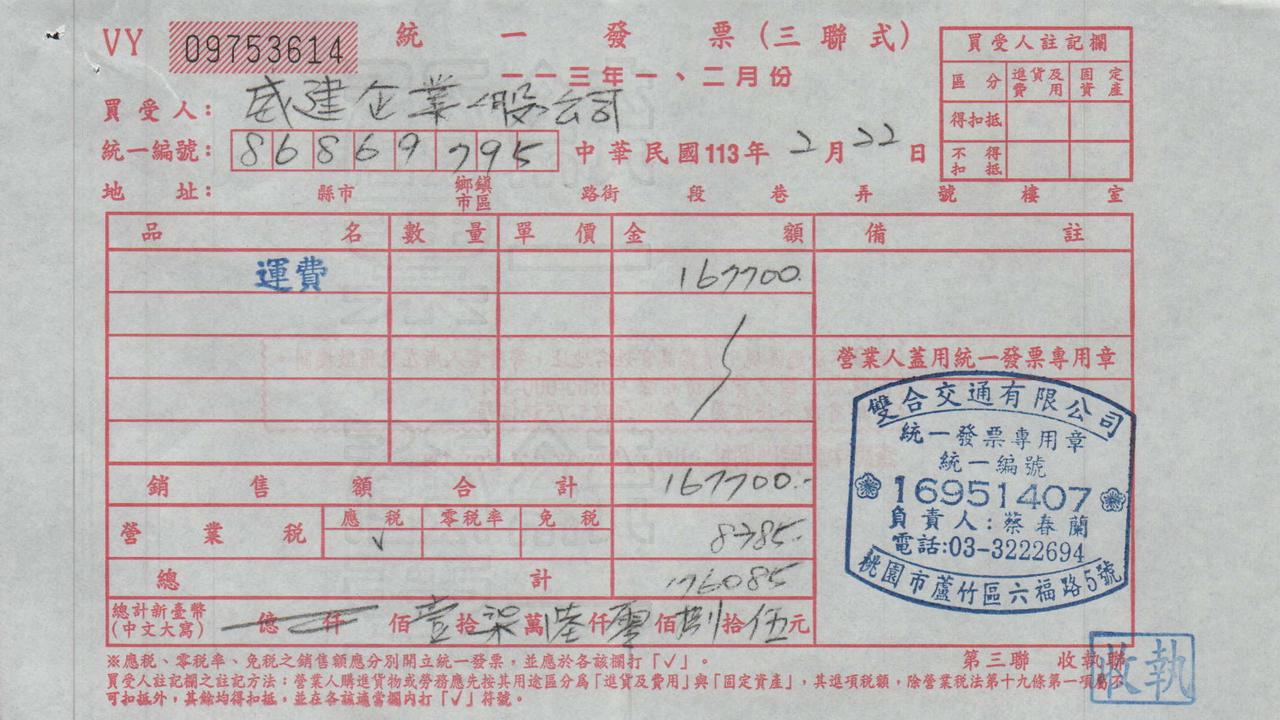 VY 09753614 統一發票(三聯式)
一一三年一、二月份
買受人: 威建企業股公司
統一編號: 86869795 中華民國113年2月22日
地址: 縣市 鄉鎮市區 路街 段 巷 弄 號 樓 室
買受人註記欄
區分 進貨及費用 固定資產
得扣抵
不得扣抵
品名 數量 單價 金額 備註
運費 167700.
營業人蓋用統一發票專用章
銷售額合計 167700.-
營業稅 應稅 零稅率 免稅
✓ 8385.-
總計 176085
總計新臺幣(中文大寫) 億 仟 佰壹拾柒萬陸仟零佰捌拾伍元
雙合交通有限公司
統一發票專用章
統一編號
16951407
負責人:蔡春蘭
電話:03-3222694
桃園市蘆竹區六福路5號
※應稅、零稅率、免稅之銷售額應分別開立統一發票,並應於各該欄打「✓」。
第三聯 收執聯
收執
買受人註記欄之註記方法:營業人購進貨物或勞務應先按其用途區分為「進貨及費用」與「固定資產」,其進項稅額,除營業稅法第十九條第一項屬不
可扣抵外,其餘均得扣抵,並在各該適當欄內打「✓」符號。